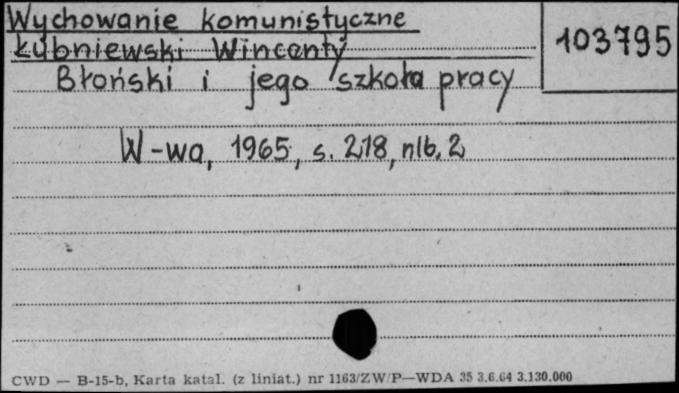 Wychowanie komunistyczne
103795
Łubniewski Wincenty
Błoński i jego szkoła pracy
W-wa, 1965, s. 218, nlb. 2
CWD — B-15-b, Karta katal. (z liniat.) nr 1163/ZW/P—WDA 35 3.6.64 3.130.000